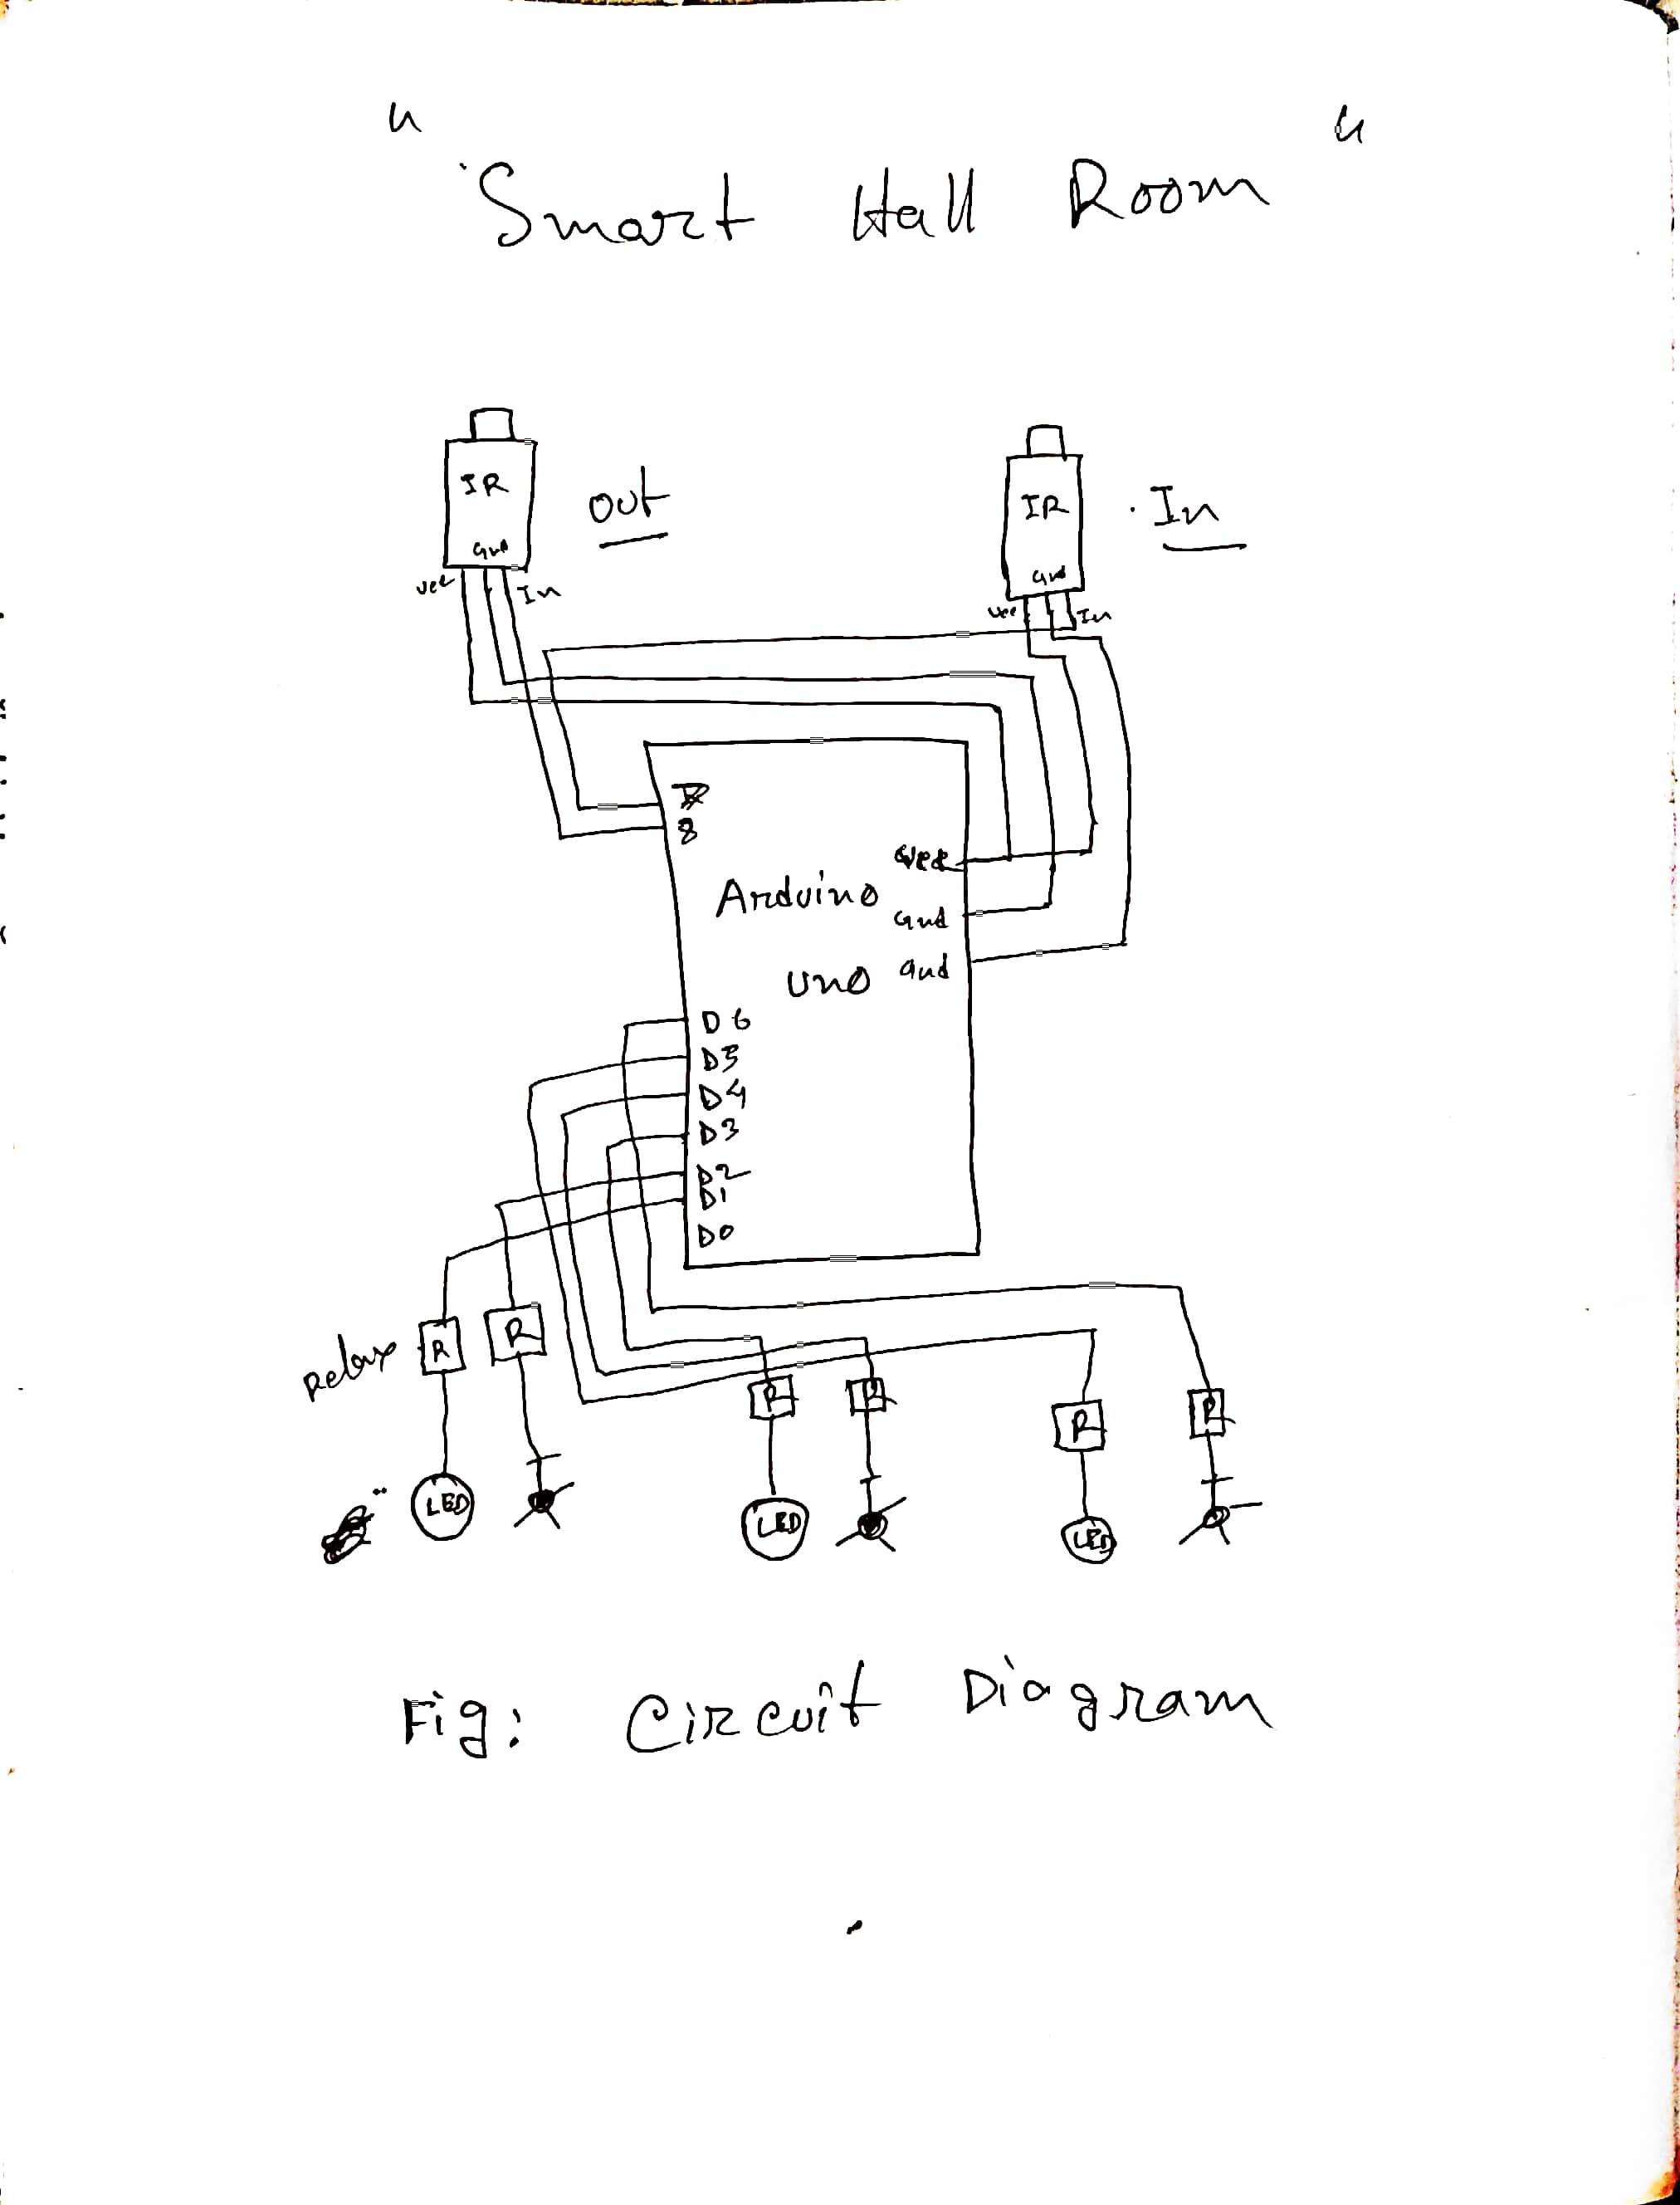 "Smart Hall Room"
IR
Gnd
vcc
In
out
IR
Gnd
vcc
In
In
8
vcc
Arduino
Gnd
uno
Gnd
D6
D5
D4
D3
D2
D1
D0
R
R
R
R
R
R
LED
LED
LED
Fig: Circuit Diagram